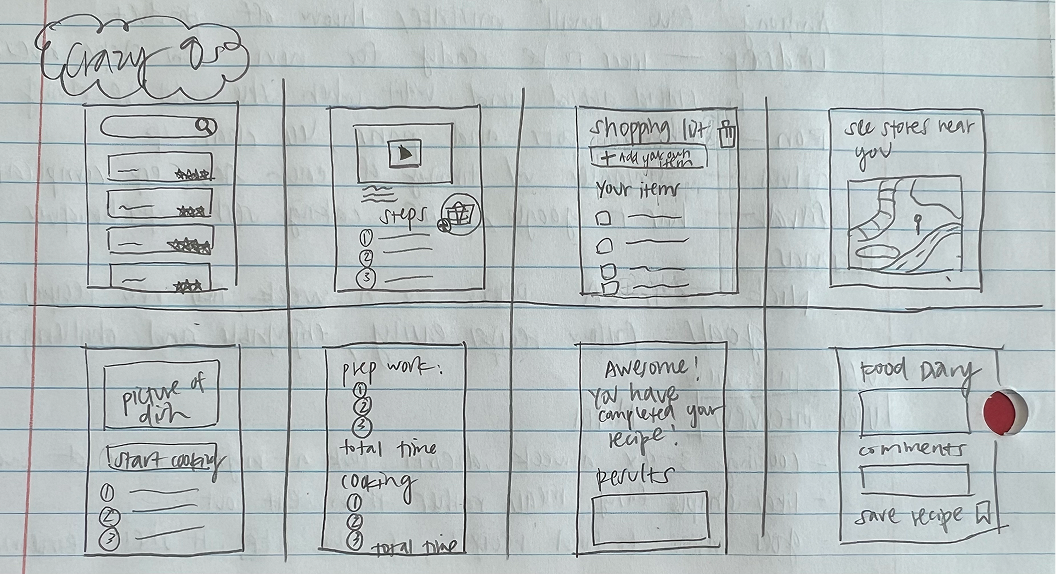 Crazy 8s
steps
1
2
3
shopping list
+ Add your own item
Your items
see stores near
you
picture of
dish
start cooking
1
2
3
prep work:
1
2
3
total time
cooking
1
2
3
total time
Awesome!
You have
completed your
recipe!
Results
Food Diary
comments
save recipe